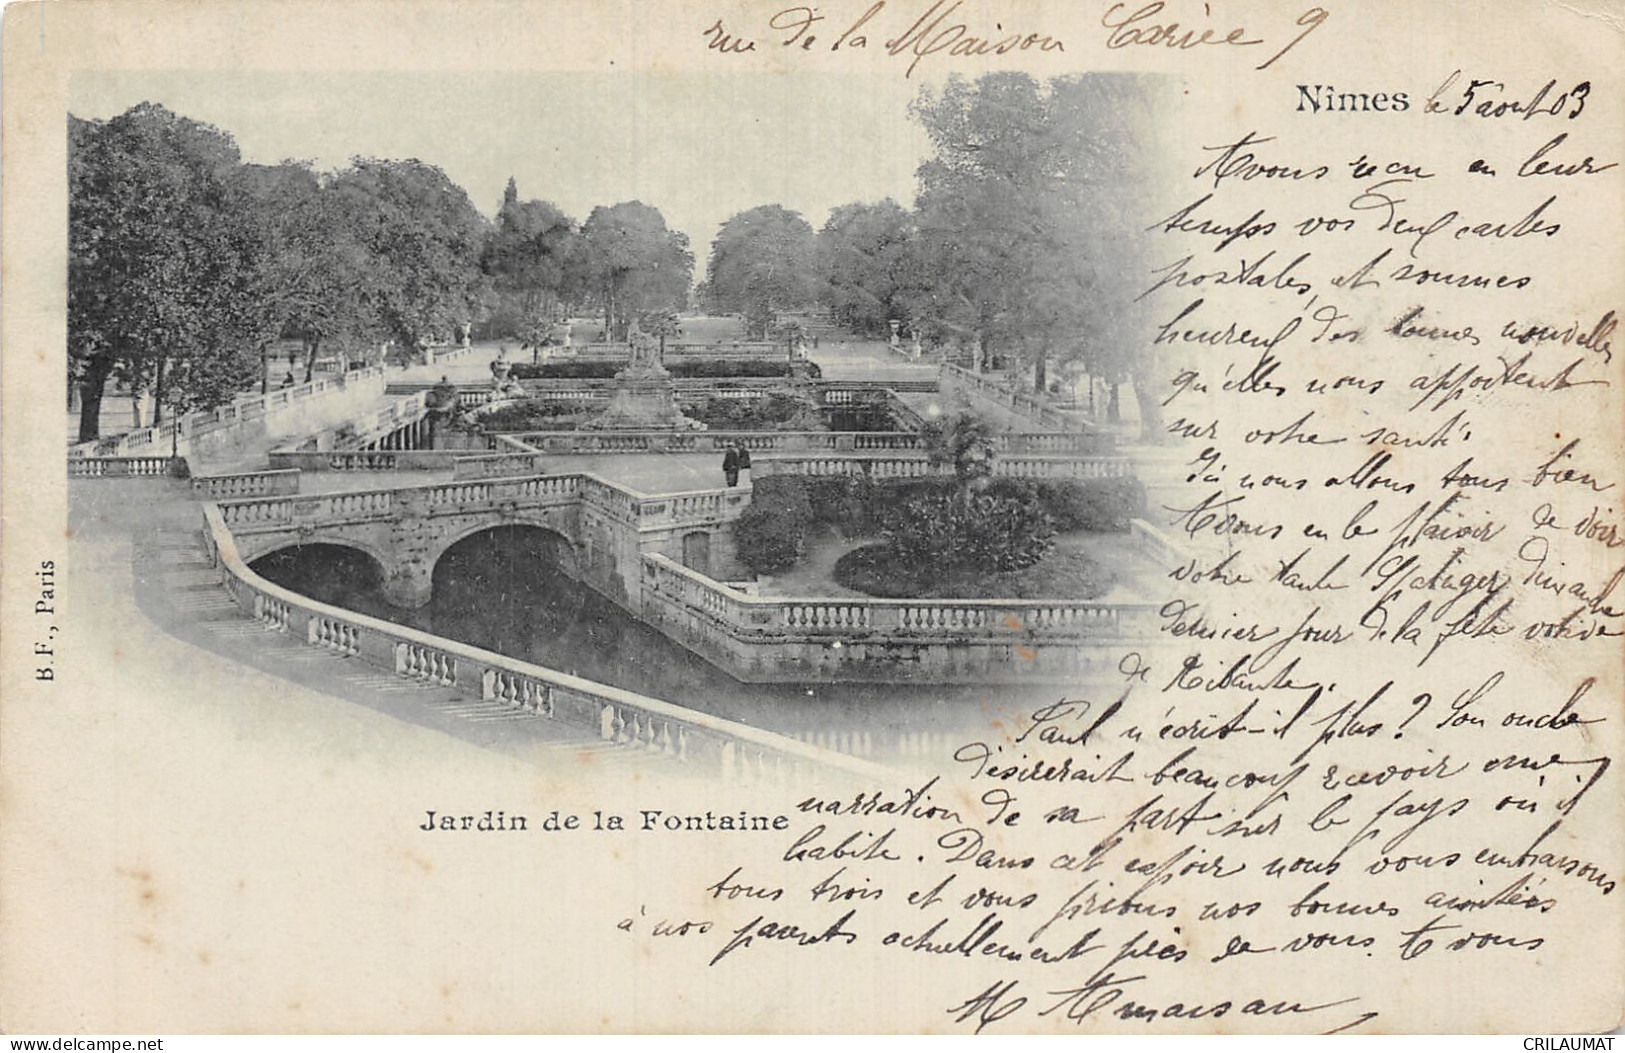 rue de la Maison Carrée 9
Nîmes le 5 août 03
Avons reçu en leur
temps vos deux cartes
postales, et sommes
heureux des bonnes nouvelles
qu'elles nous apportent
sur votre santé.
Ici nous allons tous bien
Avons eu le plaisir de voir
votre tante dimanche
dernier jour de la fête votive
de
Paul n'écrit-il plus? Son oncle
désirerait beaucoup recevoir une
narration de sa part sur le pays où il
habite. Dans cet espoir nous vous embrassons
tous trois et vous prions nos bonnes amitiés
à nos parents actuellement près de vous. A vous
Jardin de la Fontaine
B. F., Paris
delcampe.net
CRILAUMAT